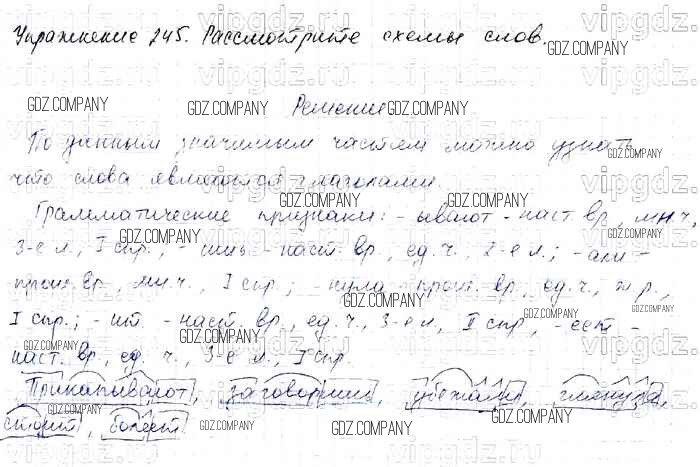 Упражнение 245. Рассмотрите схемы слов.
Решение
По данным значимым частям можно узнать
что слова являются глаголами.
Грамматические признаки: - ывают - наст вр., мн.ч.,
3-е л., I спр., - ишь - наст. вр., ед. ч., 2-е л.; -али -
прош. вр., мн. ч., I спр.; - нула - прош. вр., ед. ч., ж р.,
I спр.; - ит - наст. вр., ед. ч., 3-е л., II спр., - еет -
наст. вр., ед. ч., 3-е л., I спр.
Прикапывают, заговоришь, убежали, глянула,
стоит, болеет
vipgdz.
GDZ.COMPANY